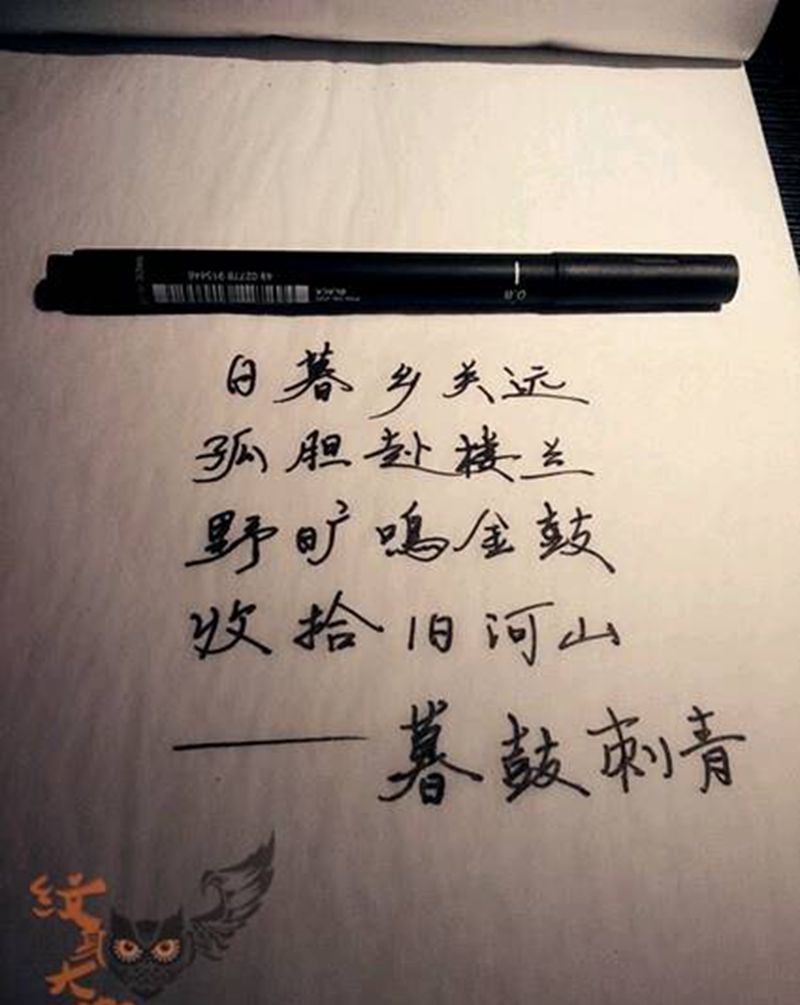 49 02778 915448
BLACK
0.8
日暮乡关远
孤胆赴楼兰
野旷鸣金鼓
收拾旧河山
——暮鼓刺青
纹身大